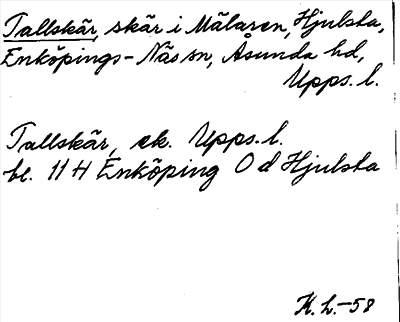 Tallskär, skär i Mälaren, Hjulsta,
Enköpings-Näs sn, Åsunda hd,
Upps. l.
Tallskär, ek. Upps. l.
bl. 11 H Enköping 0 d Hjulsta
K. L. -58